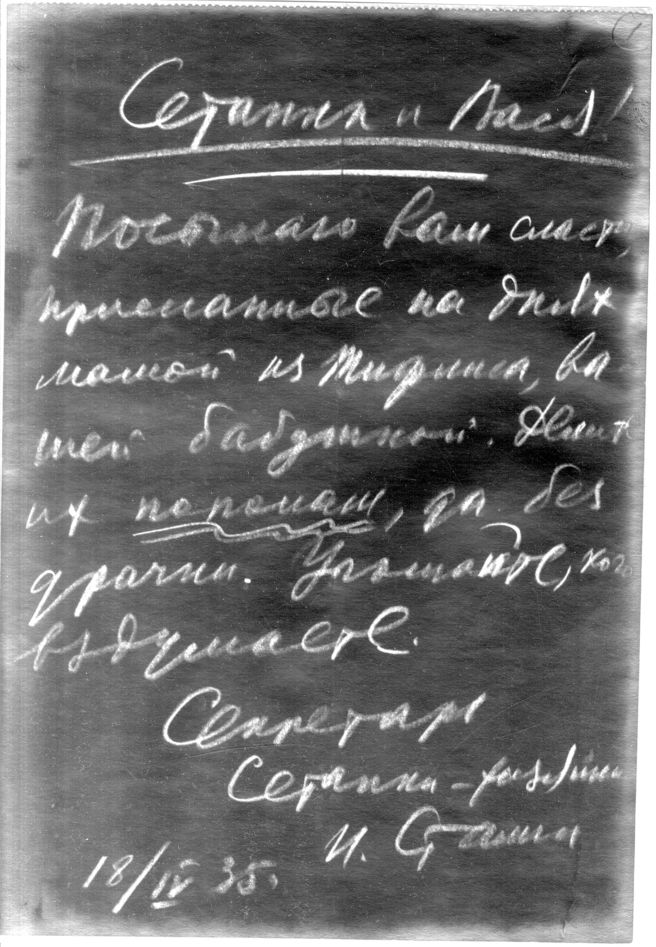 Сетанка и Вася!
Посылаю вам сласти,
присланные на днях
мамой из Тифлиса, ва-
шей бабушкой. Делите
их пополам, да без
драчки. Угощайте, кого
вздумаете.
Секретарь
Сетанки-хозяйки
И. Сталин
18/IV 35.